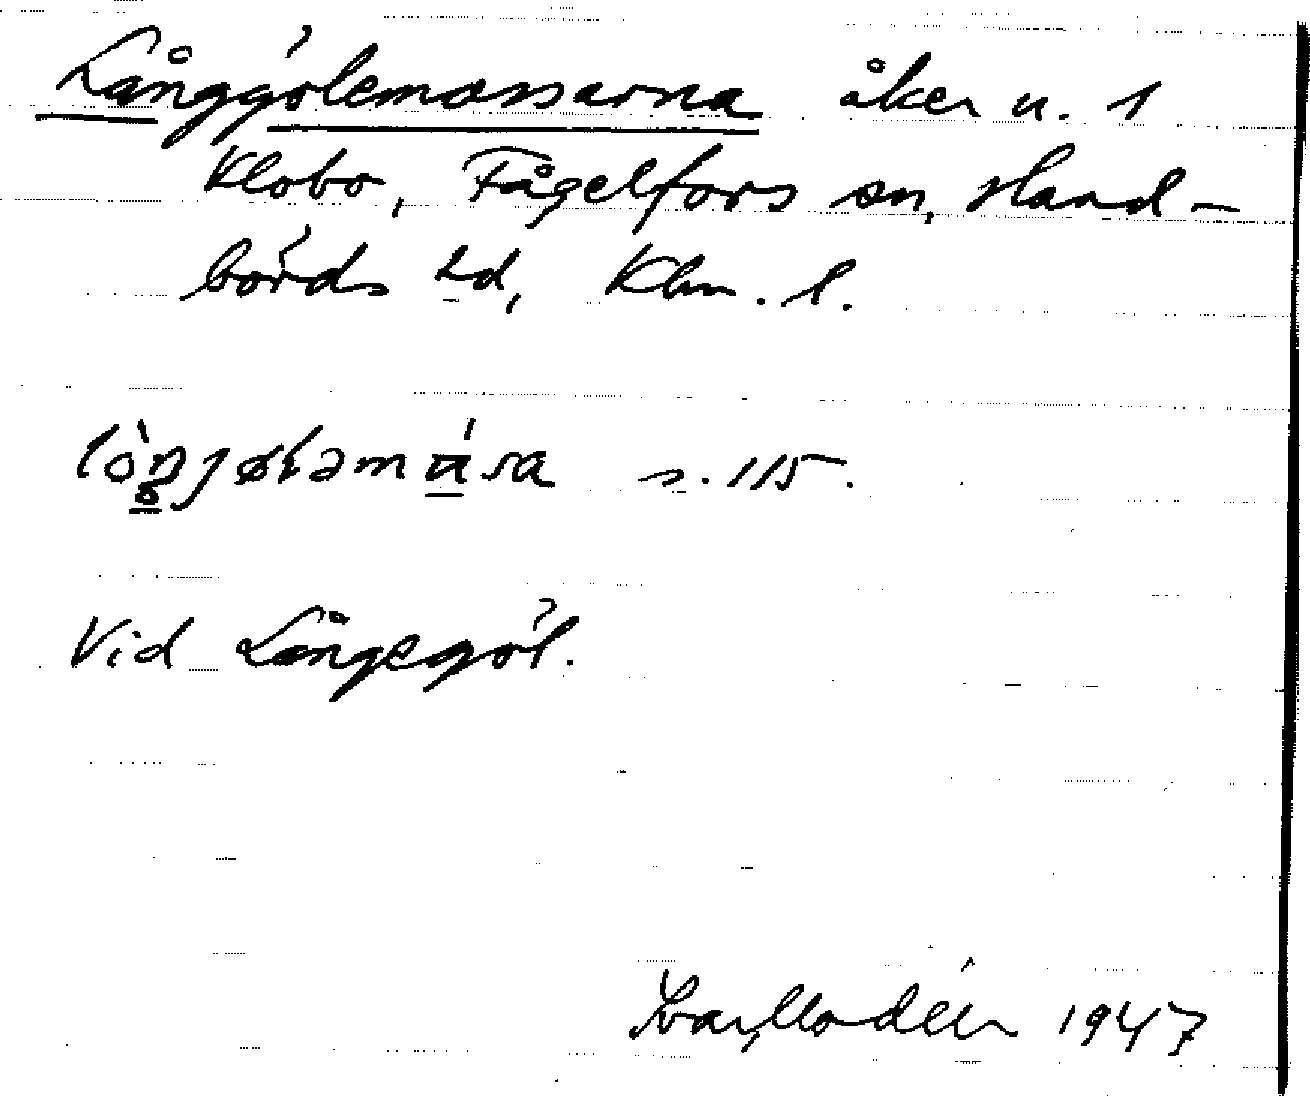 Långgölemossarna åker u. 1
Klobo, Fågelfors sn, Hand-
börds hd, Klm. l.
s. 115.
Vid Långegöl.
Ivar Modéer 1947